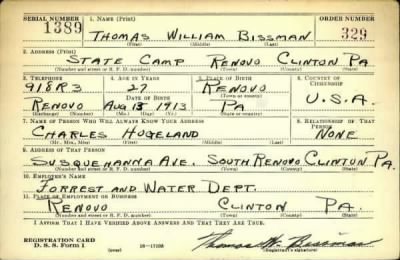 SERIAL NUMBER 1. NAME (Print) ORDER NUMBER
1389 THOMAS WILLIAM BISSMAN 329
(First) (Middle) (Last)
2. ADDRESS (Print)
STATE CAMP RENOVO CLINTON PA
(Number and street or R. F. D. number) (Town) (County) (State)
3. TELEPHONE 4. AGE IN YEARS 5. PLACE OF BIRTH 6. COUNTRY OF CITIZENSHIP
918R3 27 RENOVO
DATE OF BIRTH (Town or county)
RENOVO AUG 18 1913 PA U.S.A.
(Exchange) (Number) (Mo.) (Day) (Yr.) (State or country)
7. NAME OF PERSON WHO WILL ALWAYS KNOW YOUR ADDRESS 8. RELATIONSHIP OF THAT PERSON
CHARLES HOGELAND NONE
(Mr., Mrs., Miss) (First) (Middle) (Last)
9. ADDRESS OF THAT PERSON
SUSQUEHANNA AVE. SOUTH RENOVO CLINTON PA.
(Number and street or R. F. D. number) (Town) (County) (State)
10. EMPLOYER'S NAME
FORREST AND WATER DEPT.
11. PLACE OF EMPLOYMENT OR BUSINESS
RENOVO CLINTON PA.
(Number and street or R. F. D. number) (Town) (County) (State)
I AFFIRM THAT I HAVE VERIFIED ABOVE ANSWERS AND THAT THEY ARE TRUE.
REGISTRATION CARD
D. S. S. Form 1 Thomas W. Bissman
(Registrant's signature)